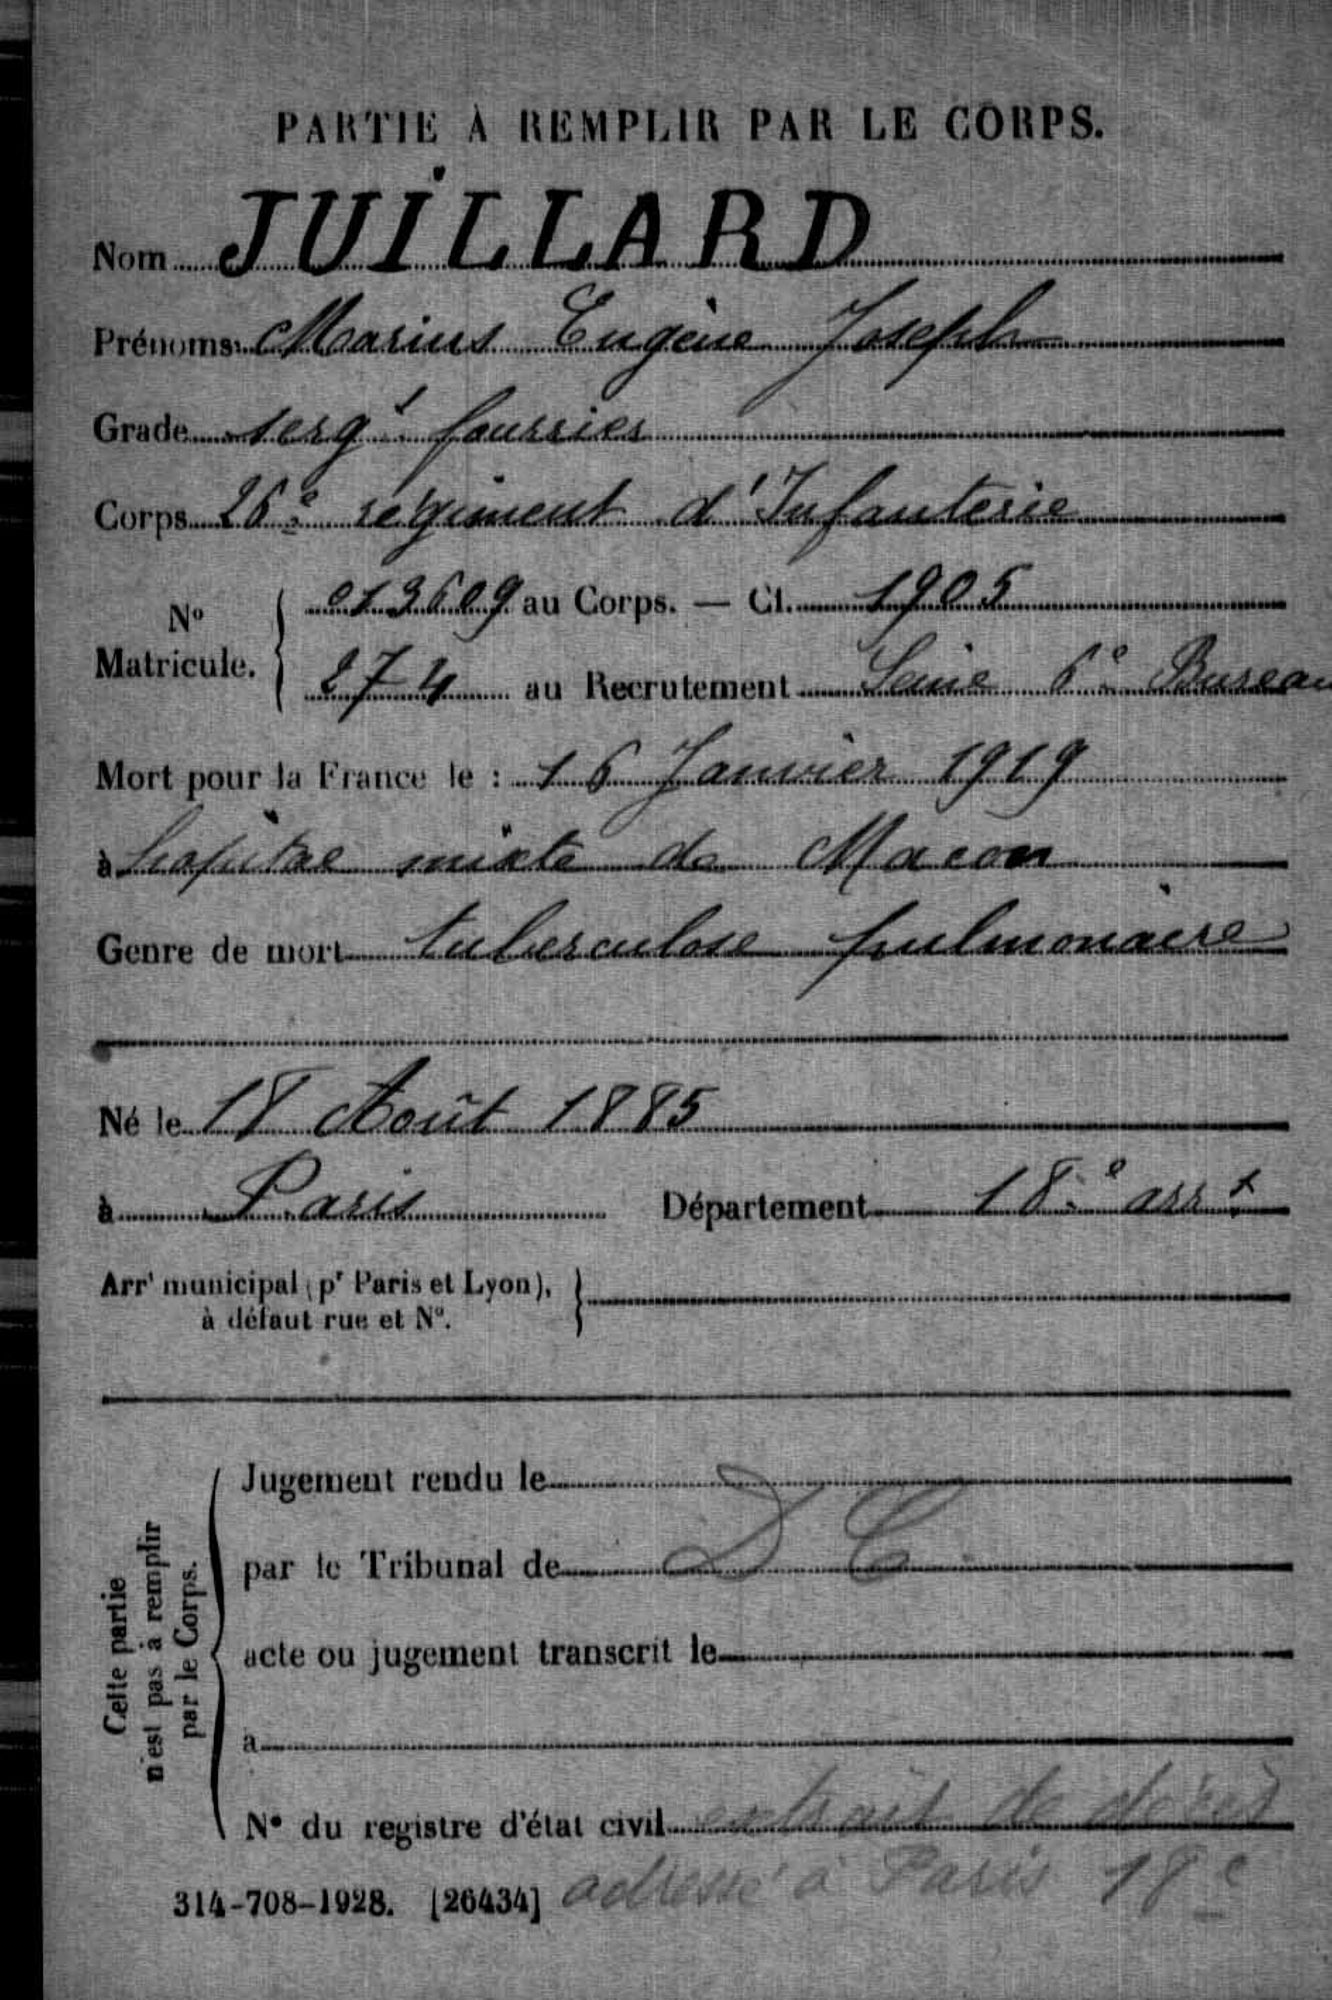 PARTIE À REMPLIR PAR LE CORPS.
Nom JUILLARD
Prénoms Marius Eugène Joseph
Grade serg^t fourrier
Corps 26e régiment d'Infanterie
N° Matricule. 013609 au Corps. — Cl. 1905
274 au Recrutement Seine 6e Bureau
Mort pour la France le : 16 Janvier 1919
à hopital mixte de Macon
Genre de mort tuberculose pulmonaire
Né le 18 Août 1885
à Paris Département 18e arr^t
Arr^t municipal (p^r Paris et Lyon),
à défaut rue et N°.
Cette partie
n'est pas à remplir
par le Corps.
Jugement rendu le
par le Tribunal de D C
acte ou jugement transcrit le
à
N° du registre d'état civil extrait de décès
adressé à Paris 18e
314-708-1928. [26434]